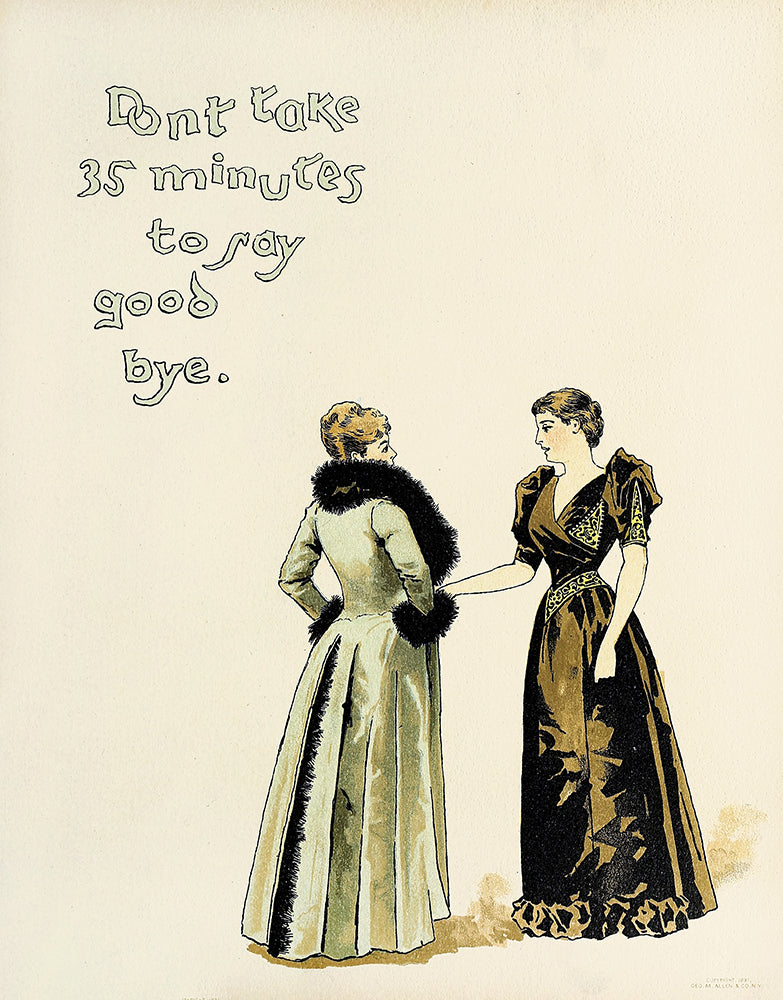 Dont take
35 minutes
to say
good
bye.
COPYRIGHT 1891
GEO. M. ALLEN & CO. N.Y.